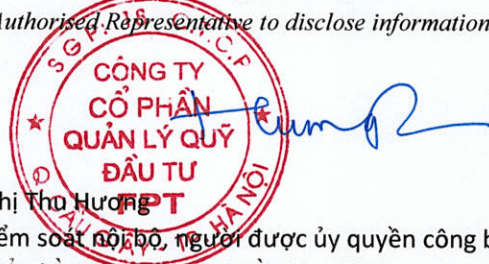 Authorised Representative to disclose information
CÔNG TY
CỔ PHẦN
QUẢN LÝ QUỸ
ĐẦU TƯ
FPT
TP. HÀ NỘI
hị Thu Hương
ểm soát nội bộ, người được ủy quyền công b